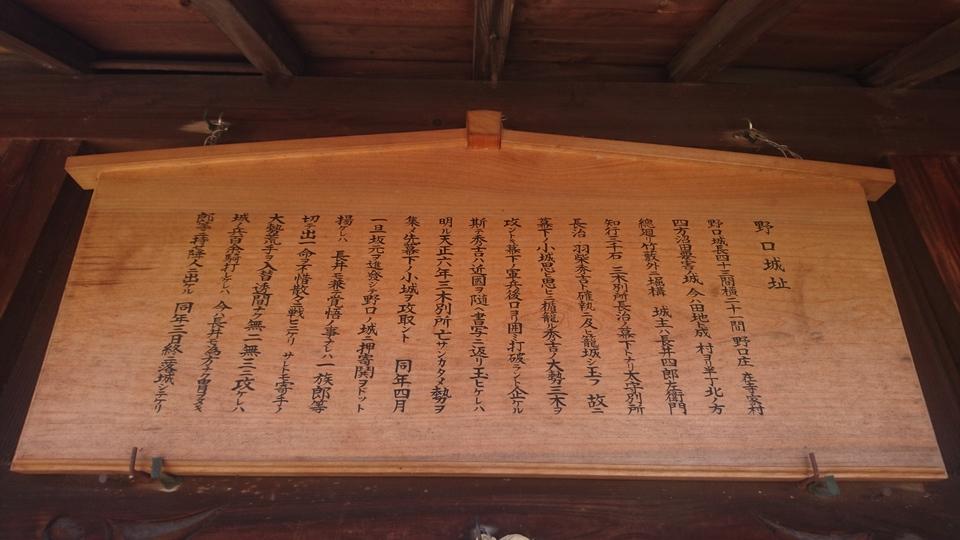 野口城址
野口城長四十三間横二十一間 野口庄 在寺家村
四方沼田要害ノ城 今ハ田地ト成 村ヨリ半丁北ノ方
惣廻竹藪外ニ堀構 城主ハ長井四郎左衛門
知行三千石 三木別所長治ノ幕下トナリ大守別所
長治 羽柴秀吉ト確執ニ及ヒ籠城シ玉フ 故ニ
幕下ノ小城思ヒ思ヒニ楯籠ル秀吉ノ大勢三木ヲ
攻ントキ幕下ノ軍兵後口ヨリ囲ミ打破ラント企ケル
斯テ秀吉ハ近國ヲ随ヘ書写ニ返リ玉ヒケレハ
明ル天正六年三木別所亡サンカタメ勢ヲ
集メ先幕下ノ小城ヲ攻取ント 同年四月
一旦坂元ヲ進發シテ野口ノ城ニ押寄鬨ヲトット
揚ケレハ 長井モ兼テ覚悟ノ事ナレハ一族郎等
切テ出一命ヲ不惜散々戦ヒニケリ サレトモ寄手ノ
大勢荒手ヲ入替透間ナク無二無三ニ攻ケレハ
城ノ兵百余騎打レケレハ 今ハ長井モ為方ナク冑ヲヌキ
郎等ニ持降人ニ出ル 同年三月終ニ落城シニケリ